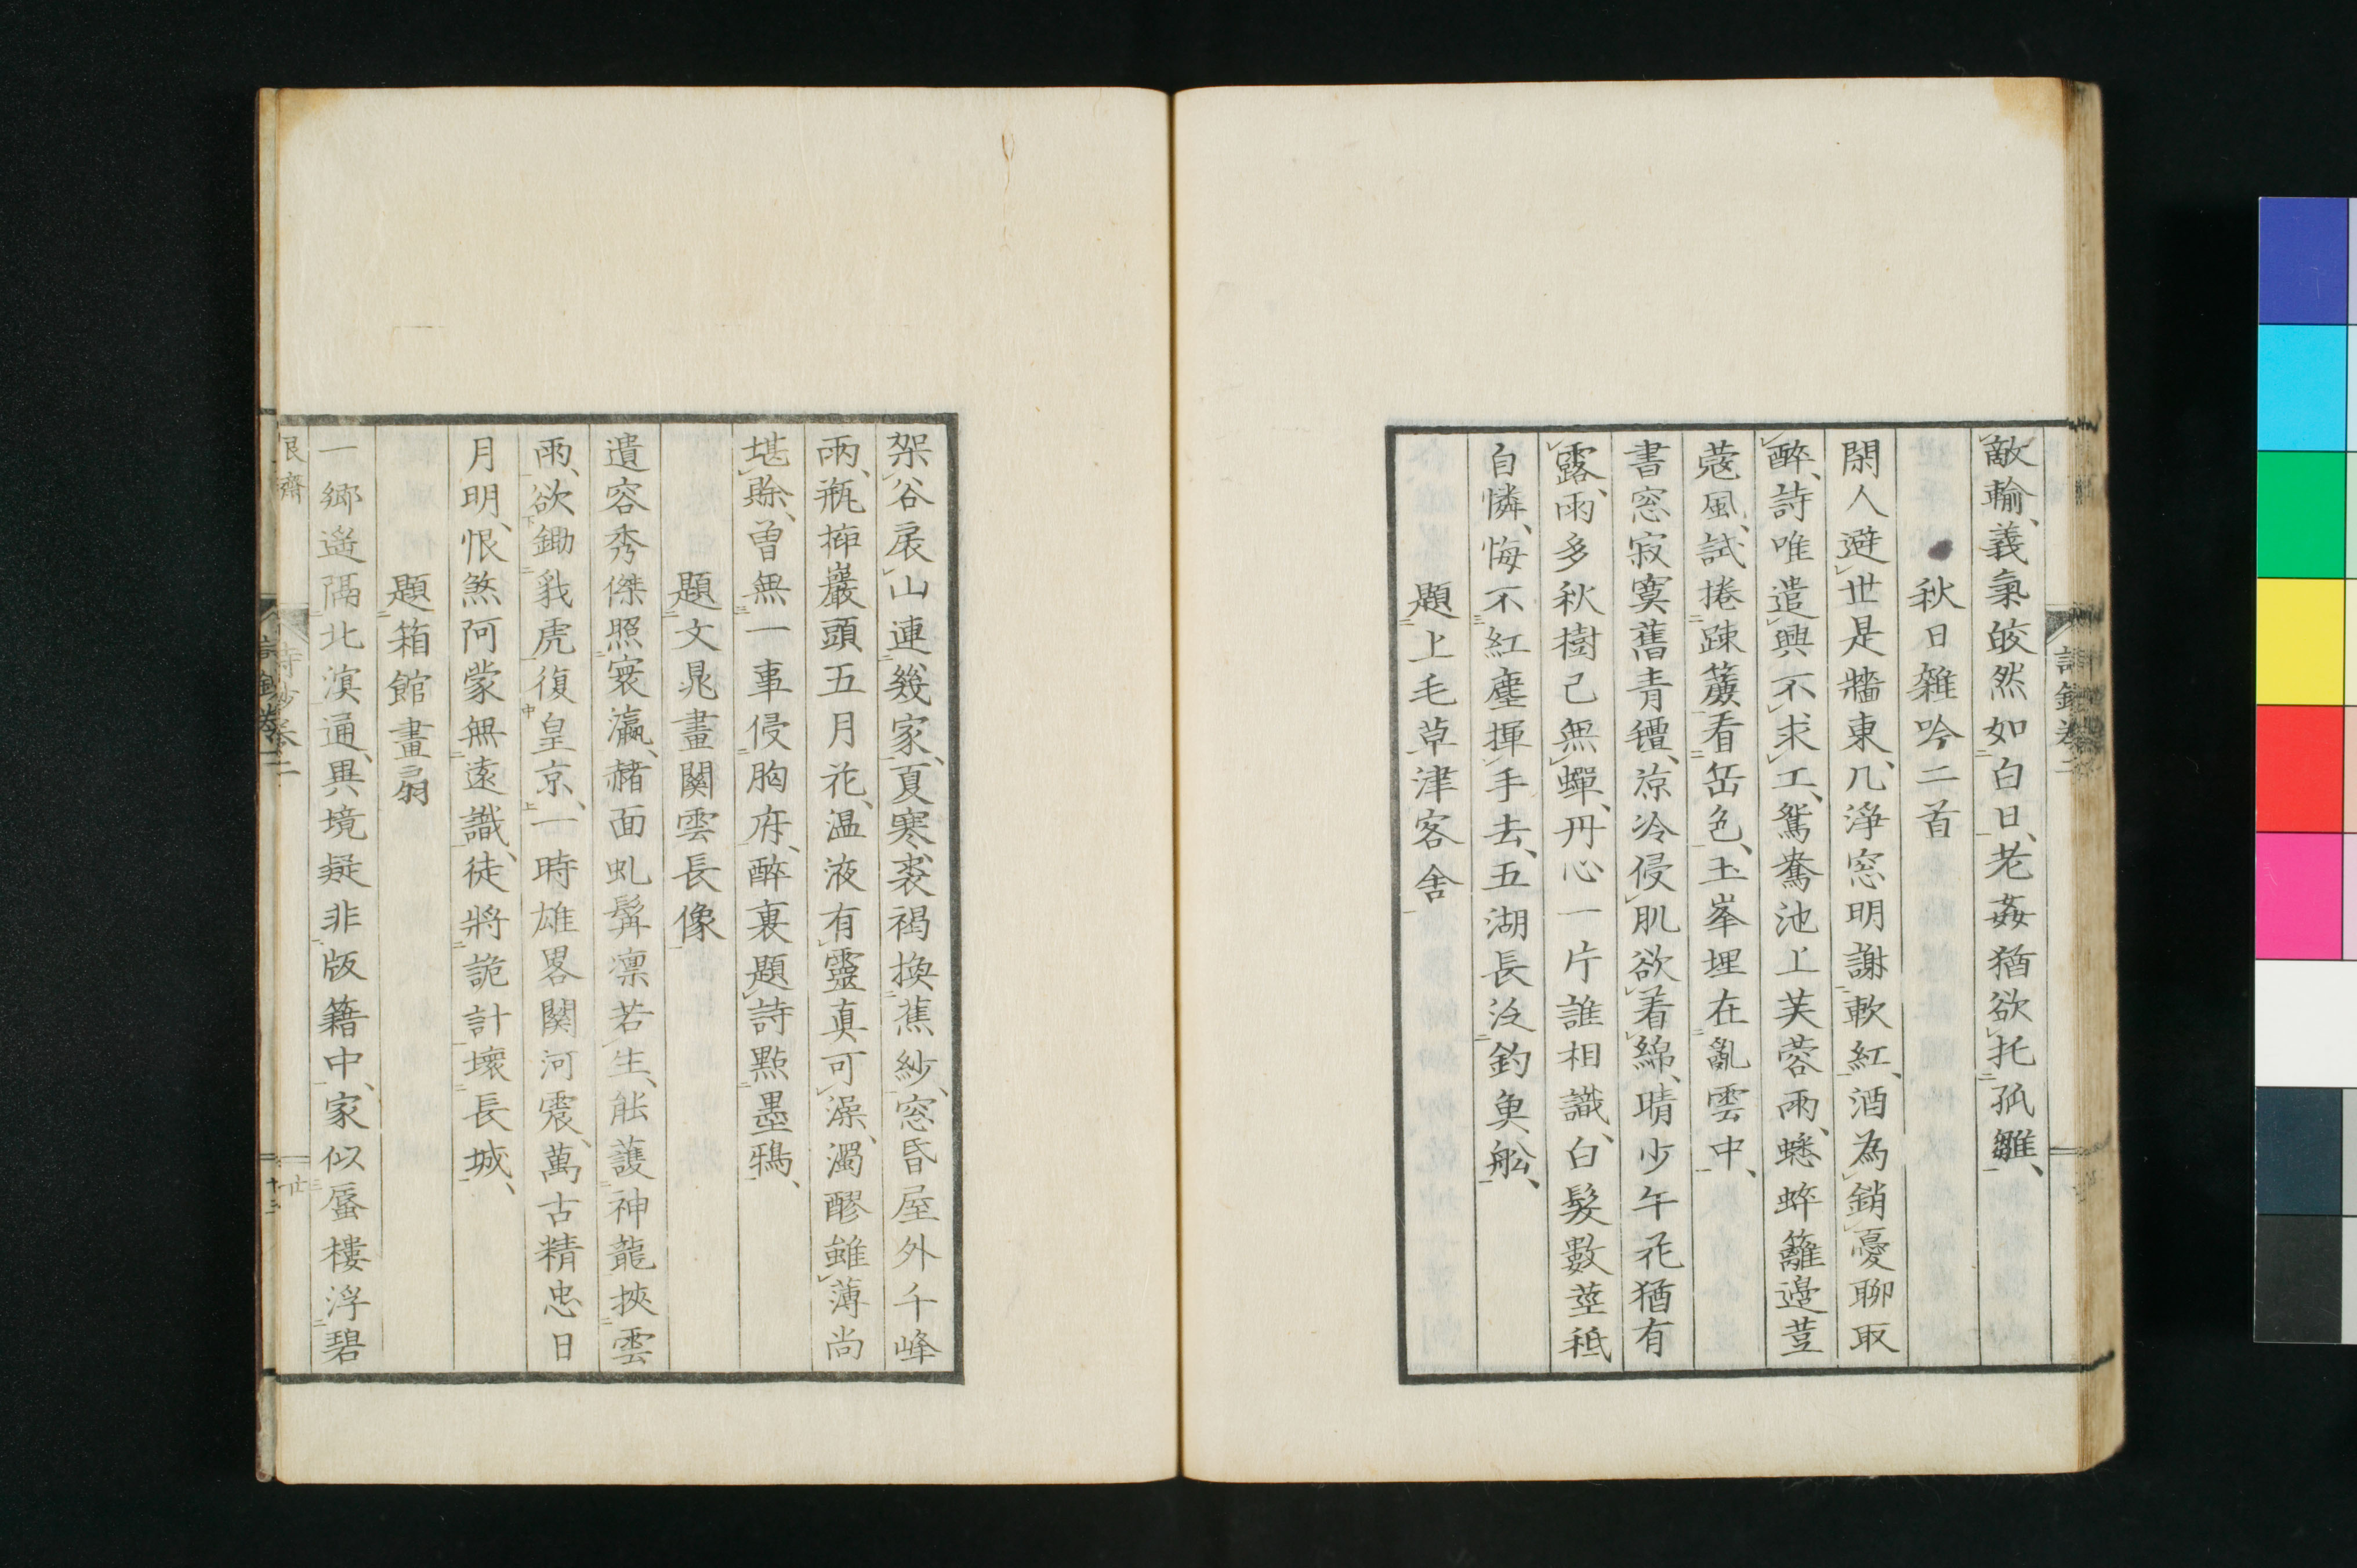 敵輸、義氣皎然如白日、老姦猶欲托孤雛、
秋日雜吟二首
閑人避世是牆東、几淨窓明謝軟紅、酒為銷憂聊取
醉、詩唯遣興不求工、鴛鴦池上芙蓉雨、蟋蟀籬邊荳
蔻風、試捲踈簾看岳色、玉峯埋在亂雲中、
書窓寂寞舊青氊、凉冷侵肌欲着綿、晴少午花猶有
露、雨多秋樹已無蟬、丹心一片誰相識、白髮數莖秪
自憐、悔不紅塵揮手去、五湖長泛釣魚舩、
題上毛草津客舍
架谷扆山連幾家、夏寒裘褐換蕉紗、窓昏屋外千峰
雨、瓶揷巖頭五月花、温液有靈真可澡、濁醪雖薄尚
堪賒、曽無一事侵胸府、醉裏題詩點墨鴉、
題文晁畫關雲長像
遺容秀傑照寰瀛、赭面虬髯凛若生、能護神龍挾雲
雨、欲鋤豺虎復皇京、一時雄畧關河震、萬古精忠日
月明、恨煞阿蒙無遠識、徒將詭計壞長城、
題箱館畫扇
一鄉遥隔北溟通、異境疑非版籍中、家似蜃樓浮碧
艮齋 詩鈔卷二